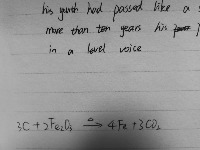 his youth had passed like a s
more than ten years his
in a level voice
3C + 2Fe₂O₃ —Δ→ 4Fe + 3CO₂